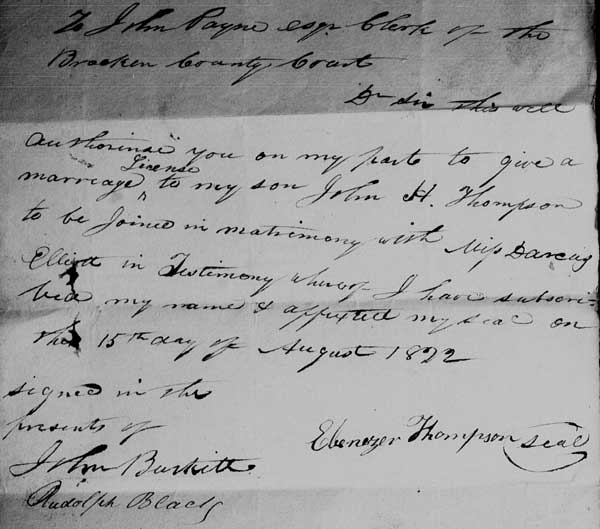 To John Payne esqr Clerk of the
Bracken County Court
Dr sir this will
authorise you on my part to give a
marriage License to my son John H. Thompson
to be Joined in matrimony with Miss Darcus
Elliott in Testimony whereof I have subscri-
bed my name & affixed my seal on
the 15th day of August 1822
signed in the
presents of
John Burkitt
Rudolph Black
Ebenezer Thompson seal